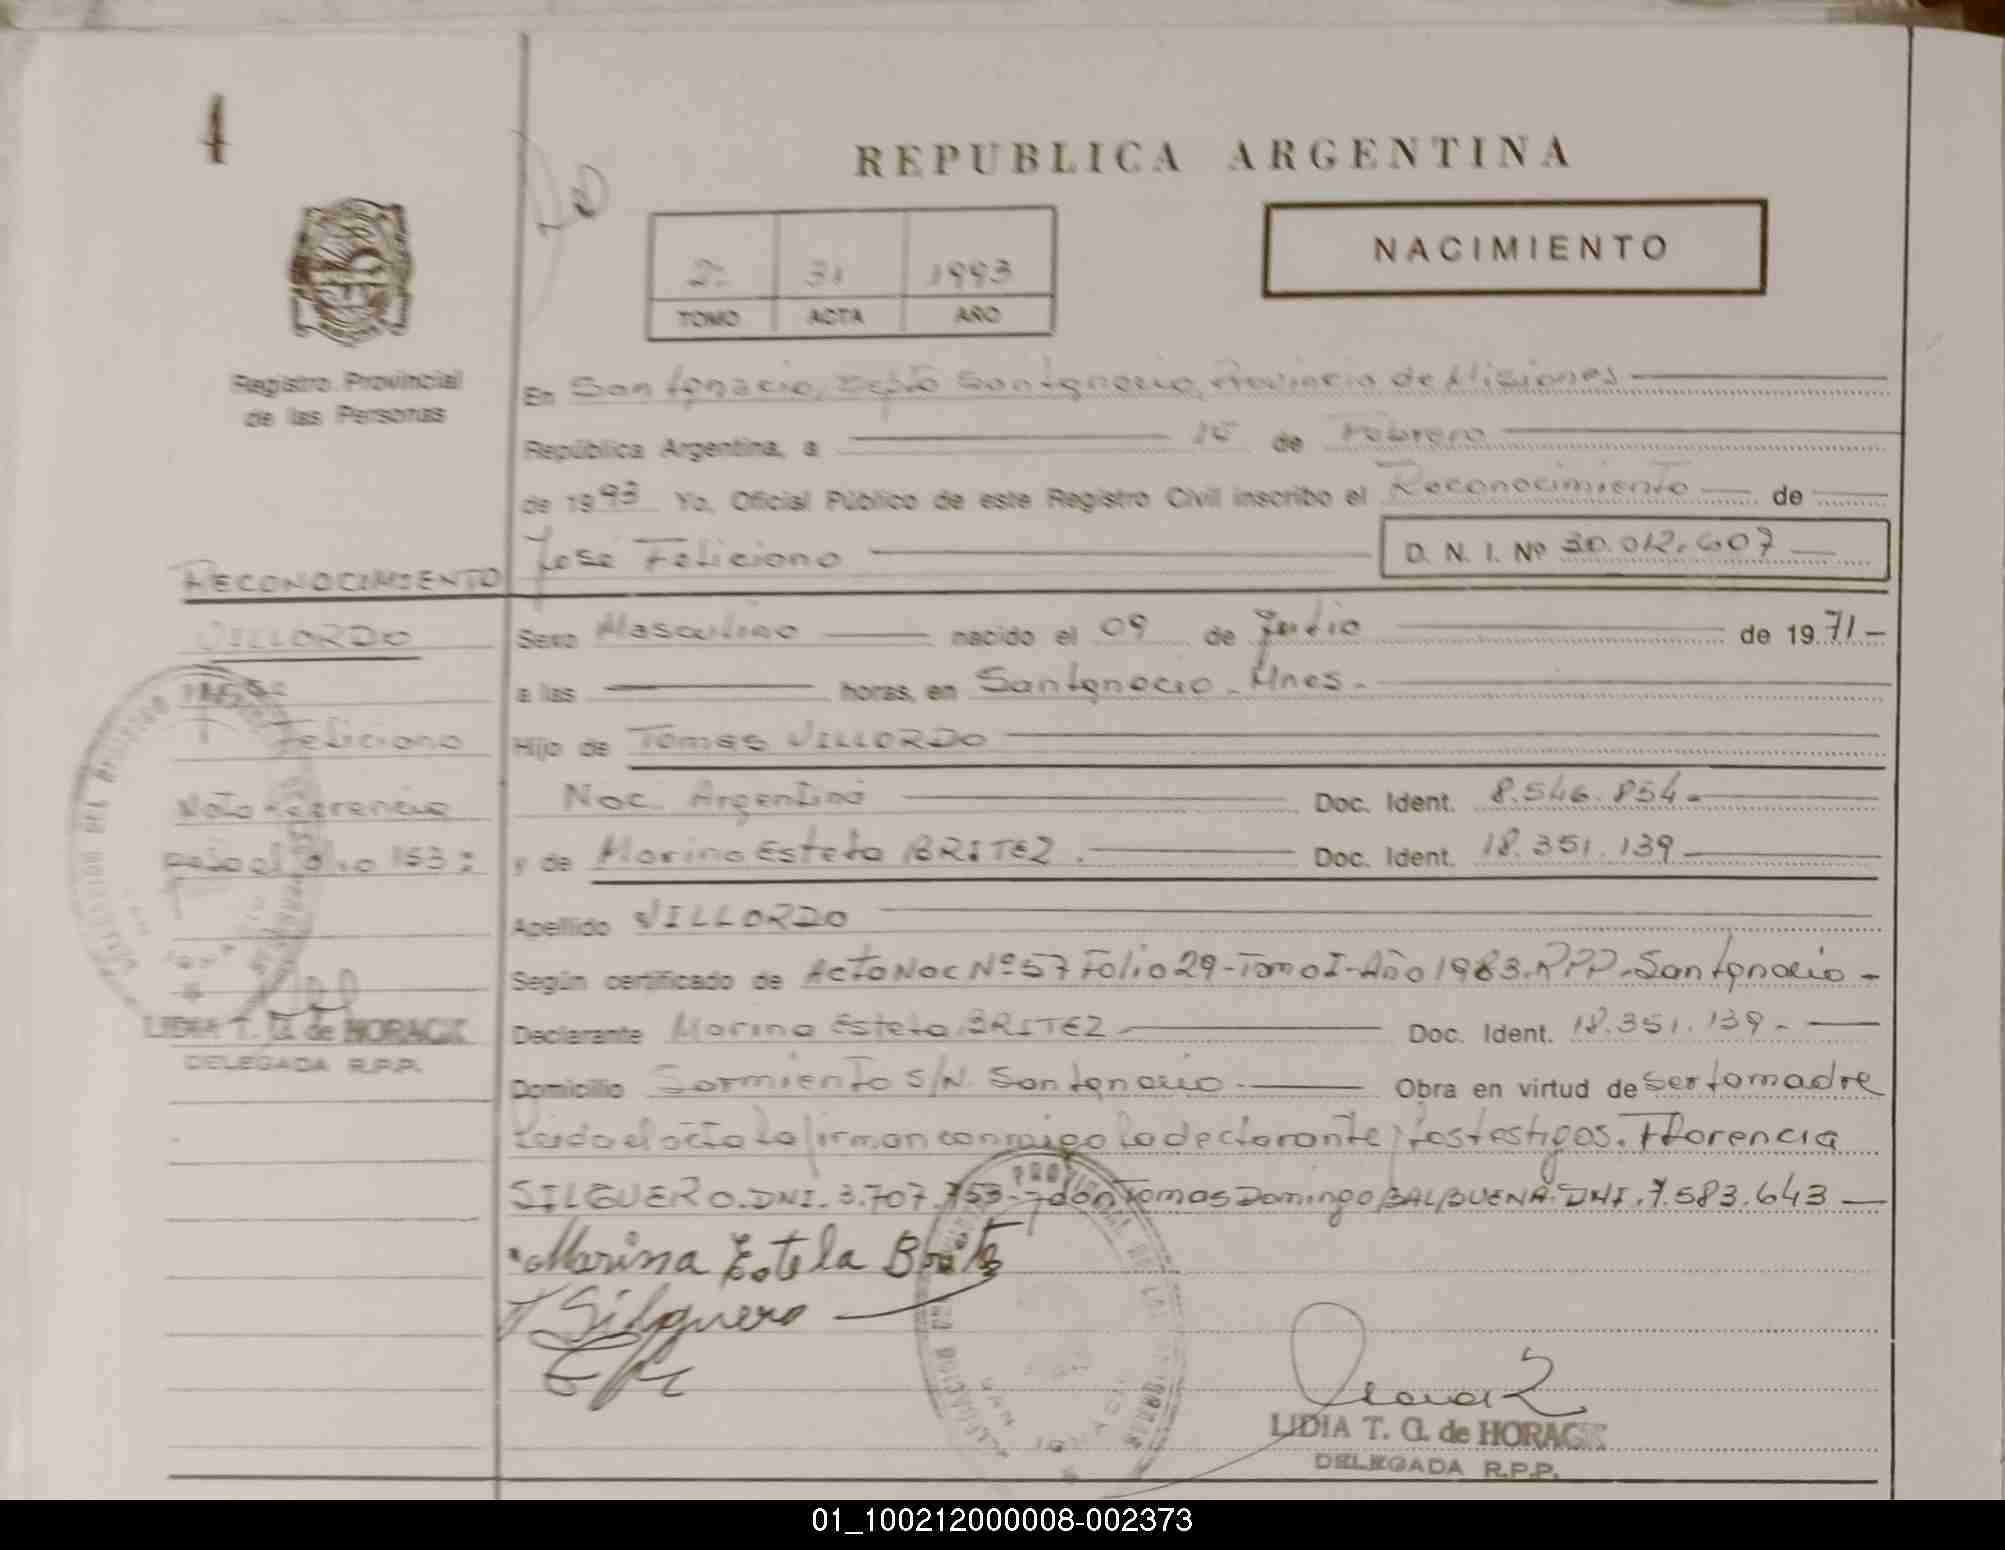 1
REPUBLICA ARGENTINA
NACIMIENTO
2= 31 1993
TOMO ACTA AÑO
Registro Provincial
de las Personas
En San Ignacio, Depto San Ignacio, Provincia de Misiones
República Argentina, a de Febrero
de 1993 Yo, Oficial Público de este Registro Civil inscribo el Reconocimiento de
José Feliciano D. N. I. Nº 30.012.607
RECONOCIMIENTO
VILLORDO
Sexo Masculino nacido el 09 de Julio de 1971-
a las horas, en San Ignacio - Mnes.
José
Feliciano
Hijo de Tomas VILLORDO
Nota referencia
Nac. Argentina Doc. Ident. 8.546.854.
folio 153
y de Marina Estela BRITEZ. Doc. Ident. 18.351.139
Apellido VILLORDO
Según certificado de Acta Nac Nº 57 Folio 29-Tomo I-Año 1983.RPP-San Ignacio-
LIDIA T. G. de HORACK
DELEGADA R.P.P.
Declarante Marina Estela BRITEZ Doc. Ident. 18.351.139.
Domicilio Sarmiento S/N. San Ignacio. Obra en virtud de ser la madre
Leida el acta la firman conmigo la declarante y los testigos. Florencia
SILGUERO.DNI.3.707.753-y don Tomas Domingo BALBUENA.DNI.7.583.643
Marina Estela Britez
Silguero
LIDIA T. G. de HORACK
DELEGADA R.P.P.
01_100212000008-002373